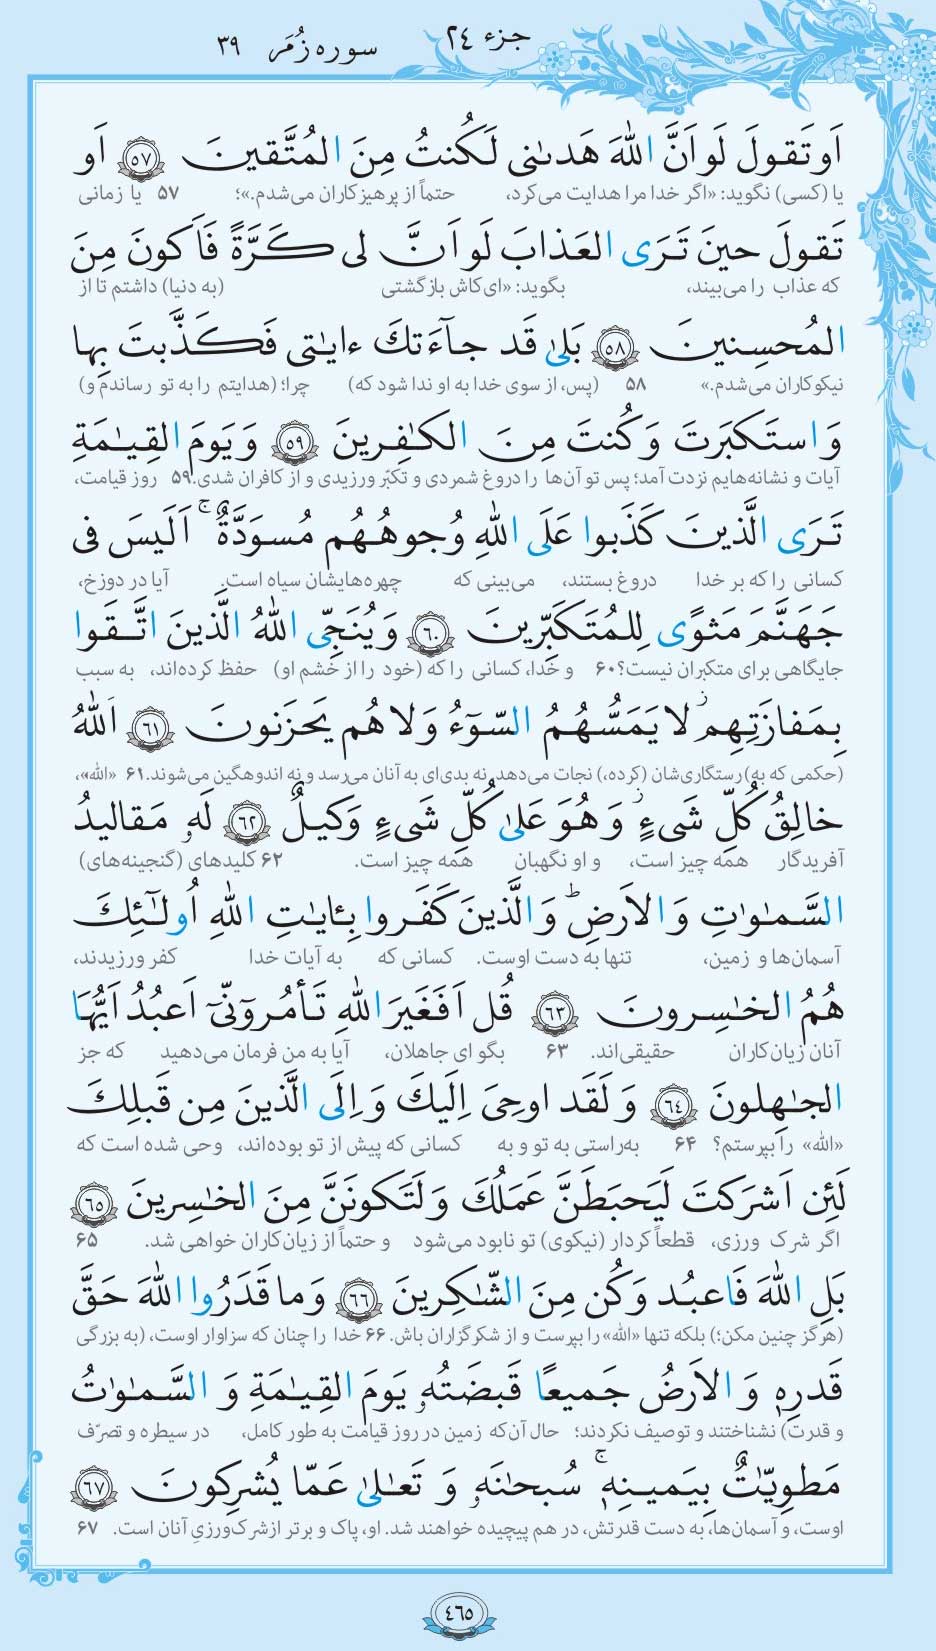 جزء ۲۴ سوره زُمَر ۳۹
اَو تَقولَ لَو اَنَّ اللّٰهَ هَدىٰنى لَكُنتُ مِنَ المُتَّقينَ ﴿۵۷﴾ اَو
یا (کسی) نگوید: «اگر خدا مرا هدایت می‌کرد، حتماً از پرهیزکاران می‌شدم.»؛ ۵۷ یا زمانی
تَقولَ حينَ تَرَى العَذابَ لَو اَنَّ لى كَرَّةً فَاَكونَ مِنَ
که عذاب را می‌بیند، بگوید: «ای کاش بازگشتی (به دنیا) داشتم تا از
المُحسِنينَ ﴿۵۸﴾ بَلىٰ قَد جآءَتكَ ءايٰتى فَكَذَّبتَ بِها
نیکوکاران می‌شدم.» ۵۸ (پس، از سوی خدا به او ندا شود که) چرا؛ (هدایتم را به تو رساندم و)
وَ استَكبَرتَ وَ كُنتَ مِنَ الكٰفِرينَ ﴿۵۹﴾ وَ يَومَ القِيٰمَةِ
آیات و نشانه‌هایم نزدت آمد؛ پس تو آن‌ها را دروغ شمردی و تکبّر ورزیدی و از کافران شدی. ۵۹ روز قیامت،
تَرَى الَّذينَ كَذَبوا عَلَى اللّٰهِ وُجوهُهُم مُسوَدَّةٌ ۚ اَلَيسَ فى
کسانی را که بر خدا دروغ بستند، می‌بینی که چهره‌هایشان سیاه است. آیا در دوزخ،
جَهَنَّمَ مَثوًى لِلمُتَكَبِّرينَ ﴿۶۰﴾ وَ يُنَجِّى اللّٰهُ الَّذينَ اتَّقَوا
جایگاهی برای متکبران نیست؟ ۶۰ و خدا، کسانی را که (خود را از خشم او) حفظ کرده‌اند، به سبب
بِمَفازَتِهِم ۖ لا يَمَسُّهُمُ السّوٓءُ وَ لا هُم يَحزَنونَ ﴿۶۱﴾ اَللّٰهُ
(حکمی که به) رستگاری‌شان (کرده،) نجات می‌دهد. نه بدی‌ای به آنان می‌رسد و نه اندوهگین می‌شوند. ۶۱ «الله»،
خالِقُ كُلِّ شَىءٍ ۖ وَ هُوَ عَلىٰ كُلِّ شَىءٍ وَكيلٌ ﴿۶۲﴾ لَهٗ مَقاليدُ
آفریدگار همه چیز است، و او نگهبان همه چیز است. ۶۲ کلیدهای (گنجینه‌های)
السَّمٰوٰتِ وَ الاَرضِ ؕ وَ الَّذينَ كَفَروا بِـٔايٰتِ اللّٰهِ اُولٰٓئِكَ
آسمان‌ها و زمین، تنها به دست اوست. کسانی که به آیات خدا کفر ورزیدند،
هُمُ الخٰسِرونَ ﴿۶۳﴾ قُل اَفَغَيرَ اللّٰهِ تَأمُروٓنّىٓ اَعبُدُ اَيُّهَا
آنان زیان‌کاران حقیقی‌اند. ۶۳ بگو ای جاهلان، آیا به من فرمان می‌دهید که جز
الجٰهِلونَ ﴿۶۴﴾ وَ لَقَد اوحِىَ اِلَيكَ وَ اِلَى الَّذينَ مِن قَبلِكَ
«الله» را بپرستم؟ ۶۴ به‌راستی به تو و به کسانی که پیش از تو بوده‌اند، وحی شده است که
لَئِن اَشرَكتَ لَيَحبَطَنَّ عَمَلُكَ وَ لَتَكونَنَّ مِنَ الخٰسِرينَ ﴿۶۵﴾
اگر شرک ورزی، قطعاً کردار (نیکوی) تو نابود می‌شود و حتماً از زیان‌کاران خواهی شد. ۶۵
بَلِ اللّٰهَ فَاعبُد وَ كُن مِنَ الشّٰكِرينَ ﴿۶۶﴾ وَ ما قَدَرُوا اللّٰهَ حَقَّ
(هرگز چنین مکن؛) بلکه تنها «الله» را بپرست و از شکرگزاران باش. ۶۶ خدا را چنان که سزاوار اوست، (به بزرگی
قَدرِهٖ وَ الاَرضُ جَميعًا قَبضَتُهٗ يَومَ القِيٰمَةِ وَ السَّمٰوٰتُ
و قدرت) نشناختند و توصیف نکردند؛ حال آن‌که زمین در روز قیامت به طور کامل، در سیطره و تصرّف
مَطوِيّٰتٌ بِيَمينِهٖ ۚ سُبحٰنَهٗ وَ تَعٰلىٰ عَمّا يُشرِكونَ ﴿۶۷﴾
اوست، و آسمان‌ها، به دست قدرتش، در هم پیچیده خواهند شد. او، پاک و برتر از شرک‌ورزیِ آنان است. ۶۷
۴۶۵